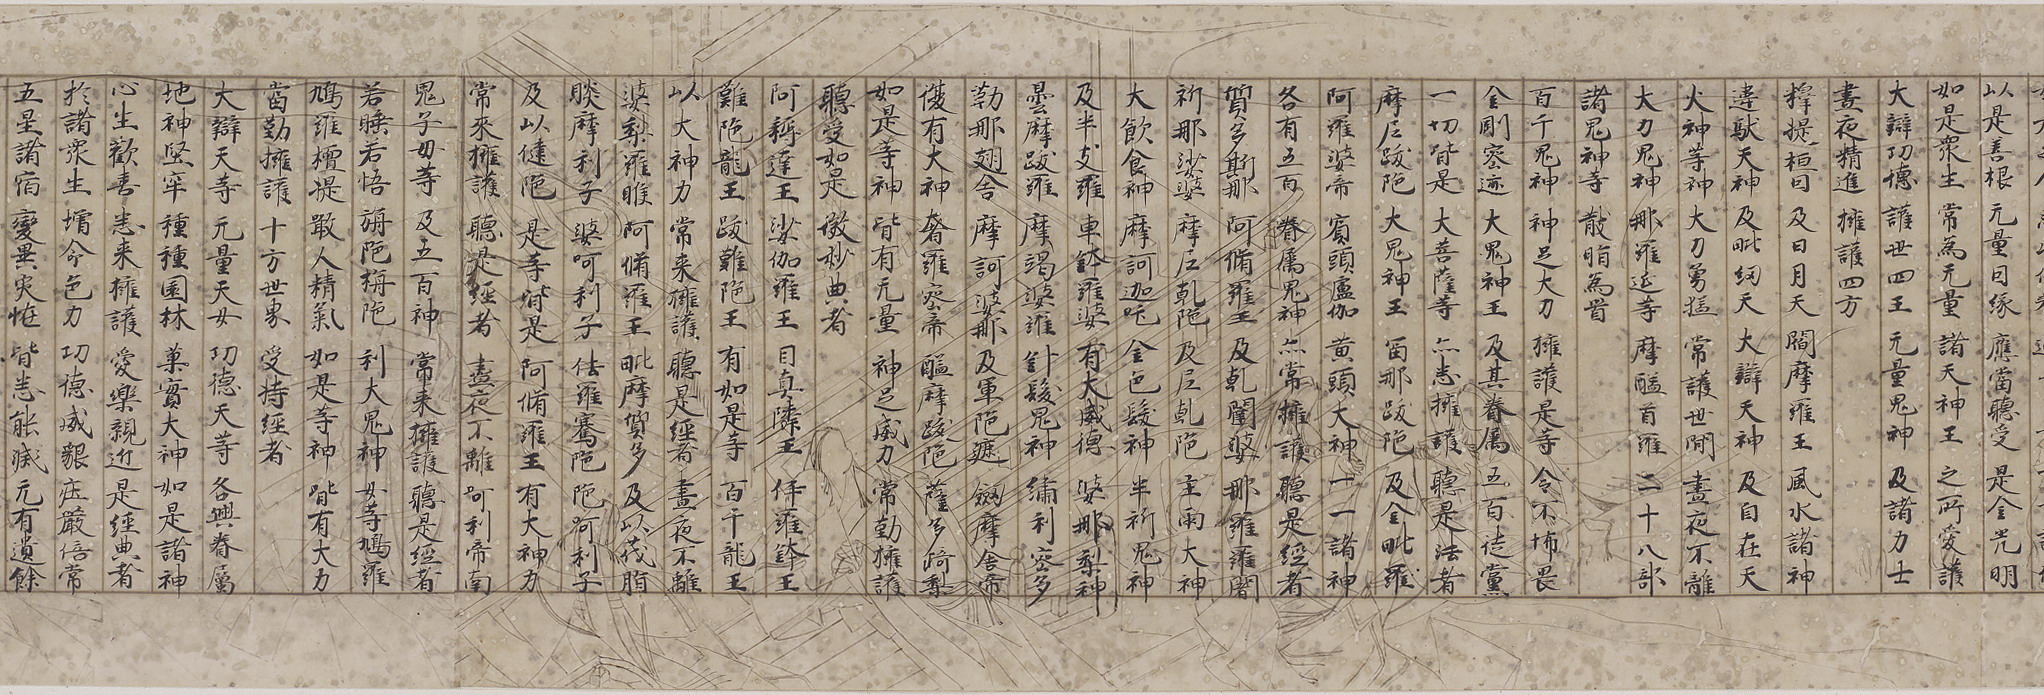 以是善根 无量因緣 應當聽受 是金光明
如是衆生 常為无量 諸天神王 之所愛護
大辯功德 護世四王 无量鬼神 及諸力士
晝夜精進 擁護四方
釋提桓因 及日月天 閻摩羅王 風水諸神
違馱天神 及毗紐天 大辯天神 及自在天
火神等神 大力勇猛 常護世間 晝夜不離
大力鬼神 那羅延等 摩醯首羅 二十八部
諸鬼神等 散脂為首
百千鬼神 神足大力 擁護是等 令不怖畏
金剛密迹 大鬼神王 及其眷属 五百徒黨
一切皆是 大菩薩等 亦悉擁護 聽是法者
摩尼跋陁 大鬼神王 富那跋陁 及金毗羅
阿羅婆帝 賓頭盧伽 黄頭大神 一一諸神
各有五百 眷属鬼神 亦常擁護 聽是經者
質多斯那 阿脩羅王 及乾闥婆 那羅羅闍
祈那娑婆 摩尼乾陁 及尼乾陁 主雨大神
大飲食神 摩訶迦吒 金色髮神 半祈鬼神
及半支羅 車鉢羅婆 有大威德 婆那梨神
曇摩跋羅 摩竭婆羅 針髮鬼神 繡利密多
勒那翅舍 摩訶婆那 及軍陁遮 劔摩舍帝
復有大神 奢羅密帝 醯摩跋陁 薩多琦梨
如是等神 皆有无量 神足威力 常勤擁護
聽受如是 微妙典者
阿耨達王 娑伽羅王 目真隣王 伊羅鉢王
難陁龍王 跋難陁王 有如是等 百千龍王
以大神力 常来擁護 聽是經者 晝夜不離
婆梨羅睺 阿脩羅王 毗摩質多 及以茂脂
睒摩利子 婆呵利子 佉羅騫陁 陁呵利子
及以揵陁 是等皆是 阿脩羅王 有大神力
常來擁護 聽是經者 晝夜不離 呵利帝南
鬼子母等 及五百神 常来擁護 聽是經者
若睡若悟 旃陁旃陁 利大鬼神 女等鳩羅
鳩羅檀提 噉人精氣 如是等神 皆有大力
當勤擁護 十方世界 受持經者
大辯天等 无量天女 功德天等 各與眷属
地神堅牢 種種園林 菓實大神 如是諸神
心生歡喜 悉来擁護 愛樂親近 是經典者
於諸衆生 增命色力 功德威皃 庄嚴倍常
五星諸宿 變異灾怪 皆悉能滅 无有遺餘